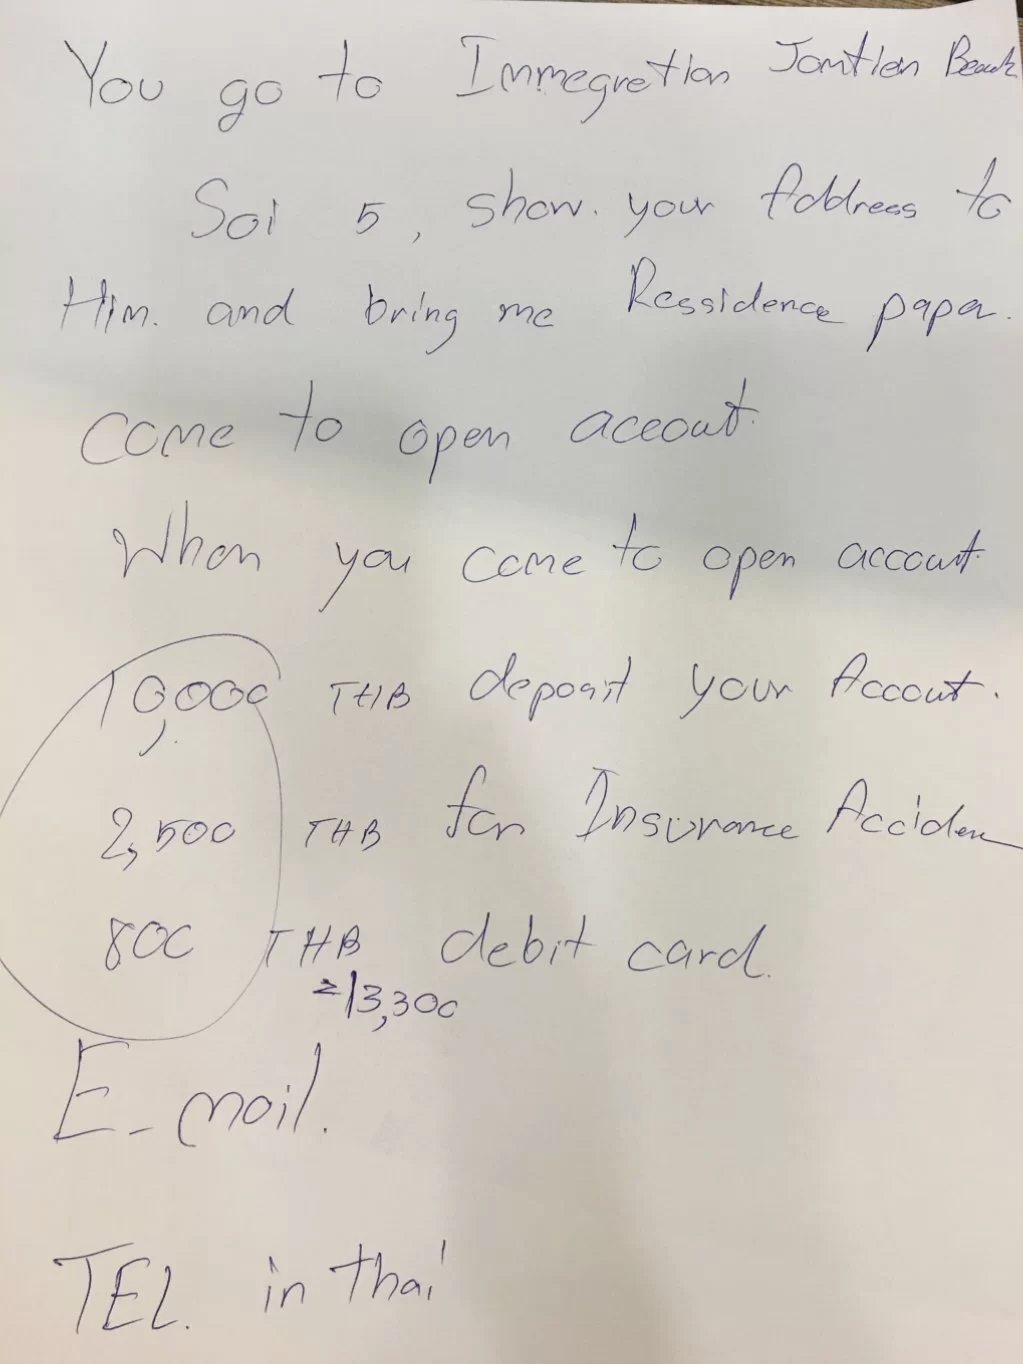 You go to Immegretion Jomtien Beach
Soi 5, show. your Address to
Him. and bring me Ressidence paper.
come to open aceout.
When you come to open account.
10,000 THB deposit your Accout.
2,500 THB for Insurance Acciden
800 THB debit card.
=13,300
E-mail.
TEL. in thai